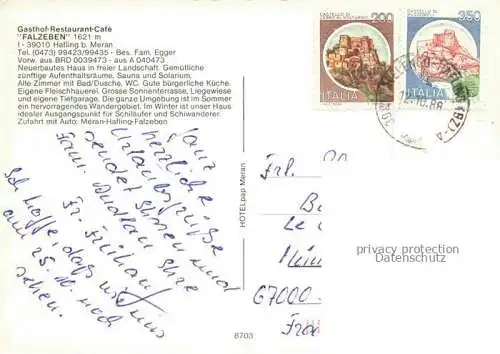 Gasthof-Restaurant-Café
"FALZEBEN" 1621 m
I - 39010 Hafling b. Meran
Tel. (0473) 98423/99435 - Bes. Fam. Egger
Vorw. aus BRD 0039473 - aus A 040473
Neuerbautes Haus in freier Landschaft. Gemütliche
zünftige Aufenthaltsräume, Sauna und Solarium.
Alle Zimmer mit Bad/Dusche, WC. Gute bürgerliche Küche.
Eigene Fleischhauerei. Grosse Sonnenterrasse, Liegewiese
und eigene Tiefgarage. Die ganze Umgebung ist im Sommer
ein hervorragendes Wandergebiet. Im Winter ist unser Haus
idealer Ausgangspunkt für Schiläufer und Schiwanderer.
Zufahrt mit Auto: Meran-Hafling-Falzeben
200
ITALIA
350
ITALIA
Ganz
herzliche
Urlaubsgrüße
sendet Ihnen und
Fam. Ihre
Fr.
Ich hoffe, daß wir uns
am 25. 10. noch
sehen.
HOTELpap Meran
8703
Frl.
67000
privacy protection
Delcampe.net